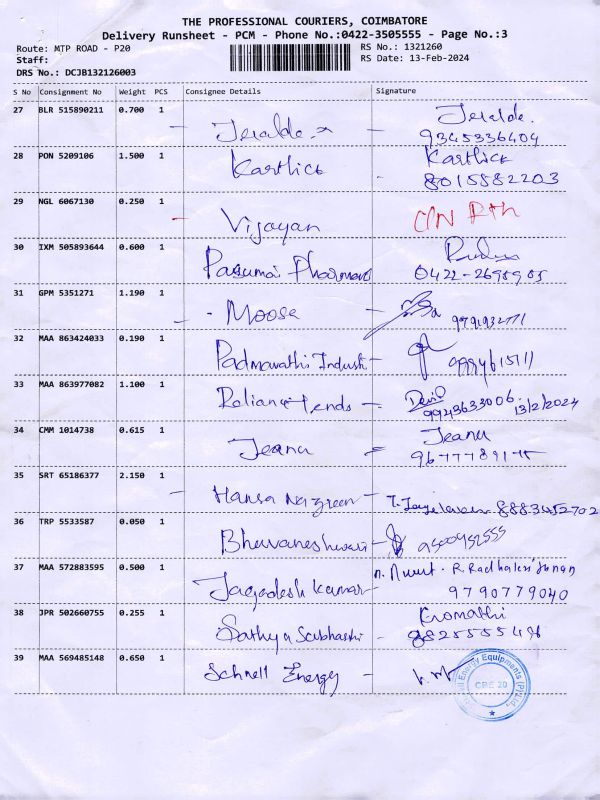 THE PROFESSIONAL COURIERS, COIMBATORE
Delivery Runsheet - PCM - Phone No.:0422-3505555 - Page No.:3
Route: MTP ROAD - P20
RS No.: 1321260
Staff:
RS Date: 13-Feb-2024
DRS No.: DCJB132126003
S No Consignment No Weight PCS Consignee Details Signature
27 BLR 515890211 0.700 1 Jeralde
9345336404
28 PON 5209106 1.500 1 Karthick - Karthick
8015582203
29 NGL 6067130 0.250 1 - Vijayan
30 IXM 505893644 0.600 1 Pasumai
31 GPM 5351271 1.190 1 - Moosa -
32 MAA 863424033 0.190 1 Padmavathi Industri -
33 MAA 863977082 1.100 1 Reliance Trends -
9943633006.
13/2/2024
34 CMM 1014738 0.615 1 Jeanu = Jeanu
35 SRT 65186377 2.150 1 - Hansa Nazreen - 8883452702
36 TRP 5533587 0.050 1 Bhuvaneshwari -
9500952555
37 MAA 572883595 0.500 1 Jagadesh kumar -
9790779040
38 JPR 502660755 0.255 1 Sathya -
39 MAA 569485148 0.650 1 Schnell Energy -
Energy Equipments (P) Ltd.
CBE 20